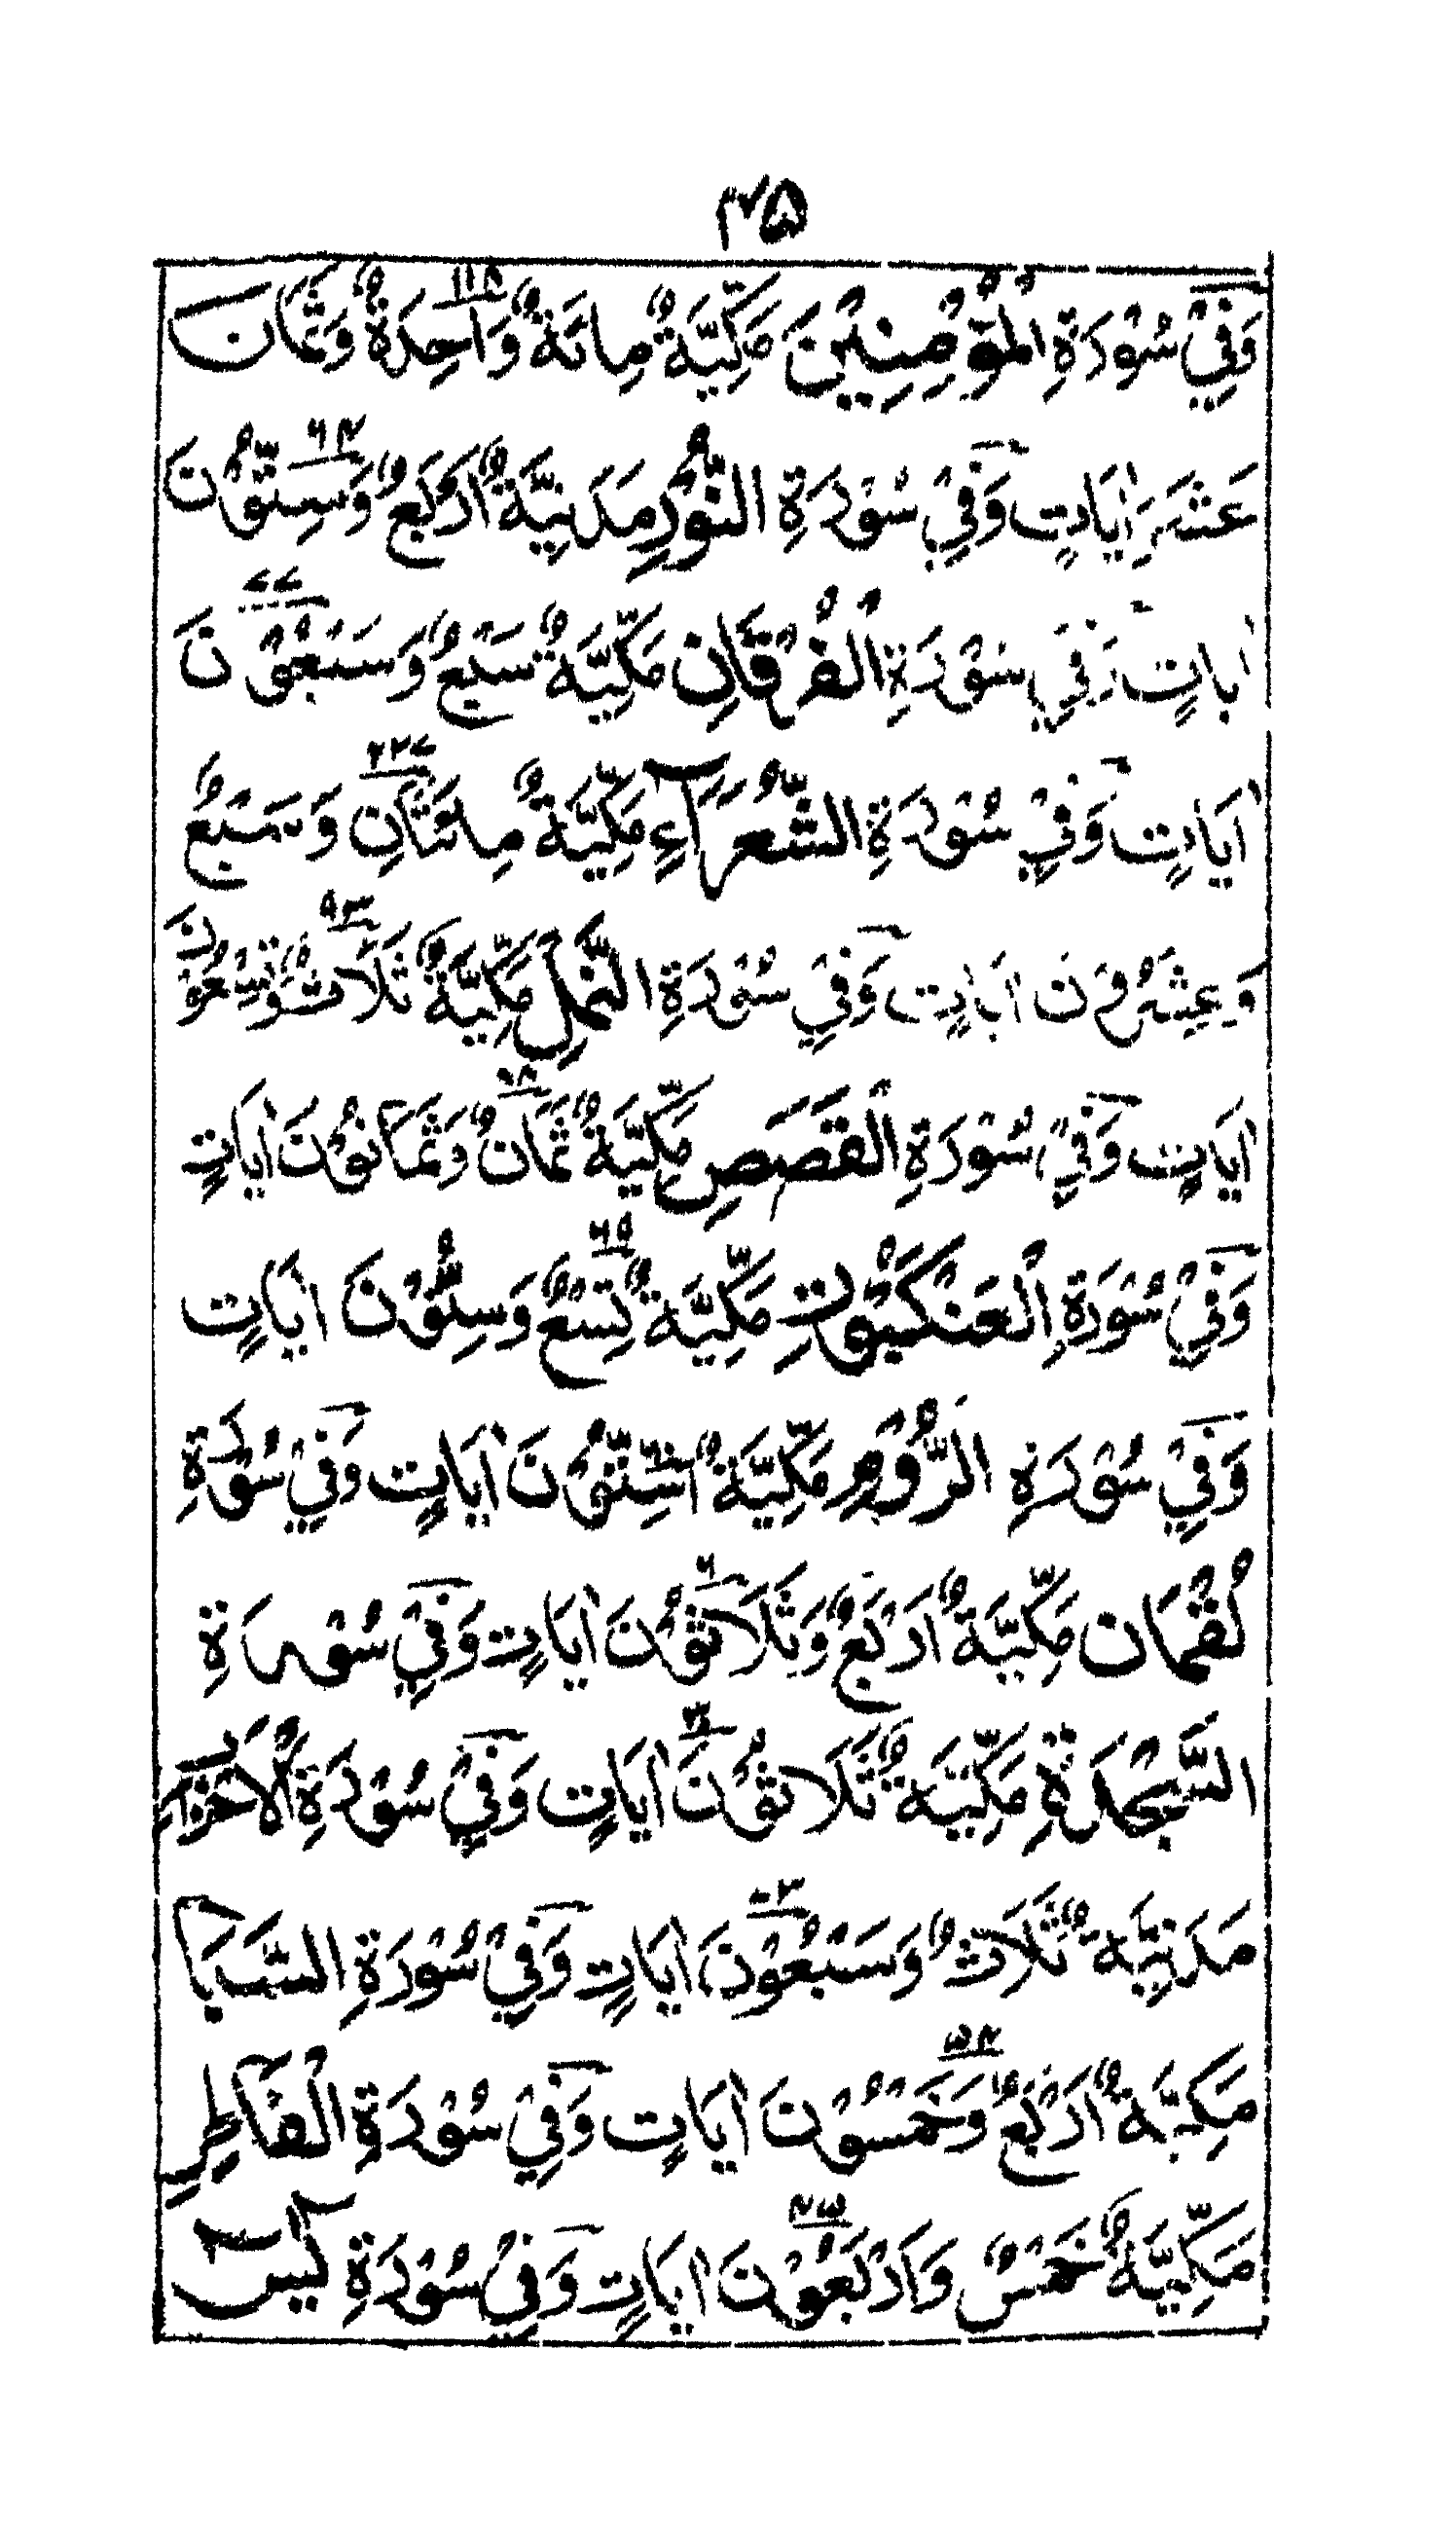 ٣٧٥
وَفِيْ سُوْرَةِ الْمُؤْمِنِيْنَ مَكِّيَّةٌ مِائَةٌ وَّاحِدَةٌ وَّثَمَان ١١٨
عَشَرَ اٰيَاتٍ وَفِيْ سُوْرَةِ النُّوْرِ مَدَنِيَّةٌ اَرْبَعٌ وَّسِتُّوْنَ ٦٤
اٰيَاتٍ وَفِيْ سُوْرَةِ الْفُرْقَانِ مَكِّيَّةٌ سَبْعٌ وَّسَبْعُوْنَ ٧٧
اٰيَاتٍ وَفِيْ سُوْرَةِ الشُّعَرَآءِ مَكِّيَّةٌ مِائَتَانِ وَسَبْعٌ ٢٢٧
وَعِشْرُوْنَ اٰيَاتٍ وَفِيْ سُوْرَةِ النَّمْلِ مَكِّيَّةٌ ثَلَاثٌ وَّتِسْعُوْنَ ٩٣
اٰيَاتٍ وَفِيْ سُوْرَةِ الْقَصَصِ مَكِّيَّةٌ ثَمَانٌ وَّثَمَانُوْنَ اٰيَاتٍ
وَفِيْ سُوْرَةِ الْعَنْكَبُوْتِ مَكِّيَّةٌ تِسْعٌ وَّسِتُّوْنَ اٰيَاتٍ ٦٩
وَفِيْ سُوْرَةِ الرُّوْمِ مَكِّيَّةٌ اسِتُّوْنَ اٰيَاتٍ وَفِيْ سُوْرَةِ
لُقْمَان مَكِّيَّةٌ اَرْبَعٌ وَّثَلَاثُوْنَ اٰيَاتٍ وَفِيْ سُوْرَةِ
السَّجْدَةِ مَكِّيَّةٌ ثَلَاثُوْنَ اٰيَاتٍ وَفِيْ سُوْرَةِ الْاَحْزَابِ
مَدَنِيَّةٌ ثَلَاثٌ وَّسَبْعُوْنَ اٰيَاتٍ وَفِيْ سُوْرَةِ السَّبَا
مَكِّيَّةٌ اَرْبَعٌ وَّخَمْسُوْنَ اٰيَاتٍ وَفِيْ سُوْرَةِ الْفَاطِرِ ٥٤
مَكِّيَّةٌ خَمْسٌ وَاَرْبَعُوْنَ اٰيَاتٍ وَفِيْ سُوْرَةِ يٰسٓ ٤٥